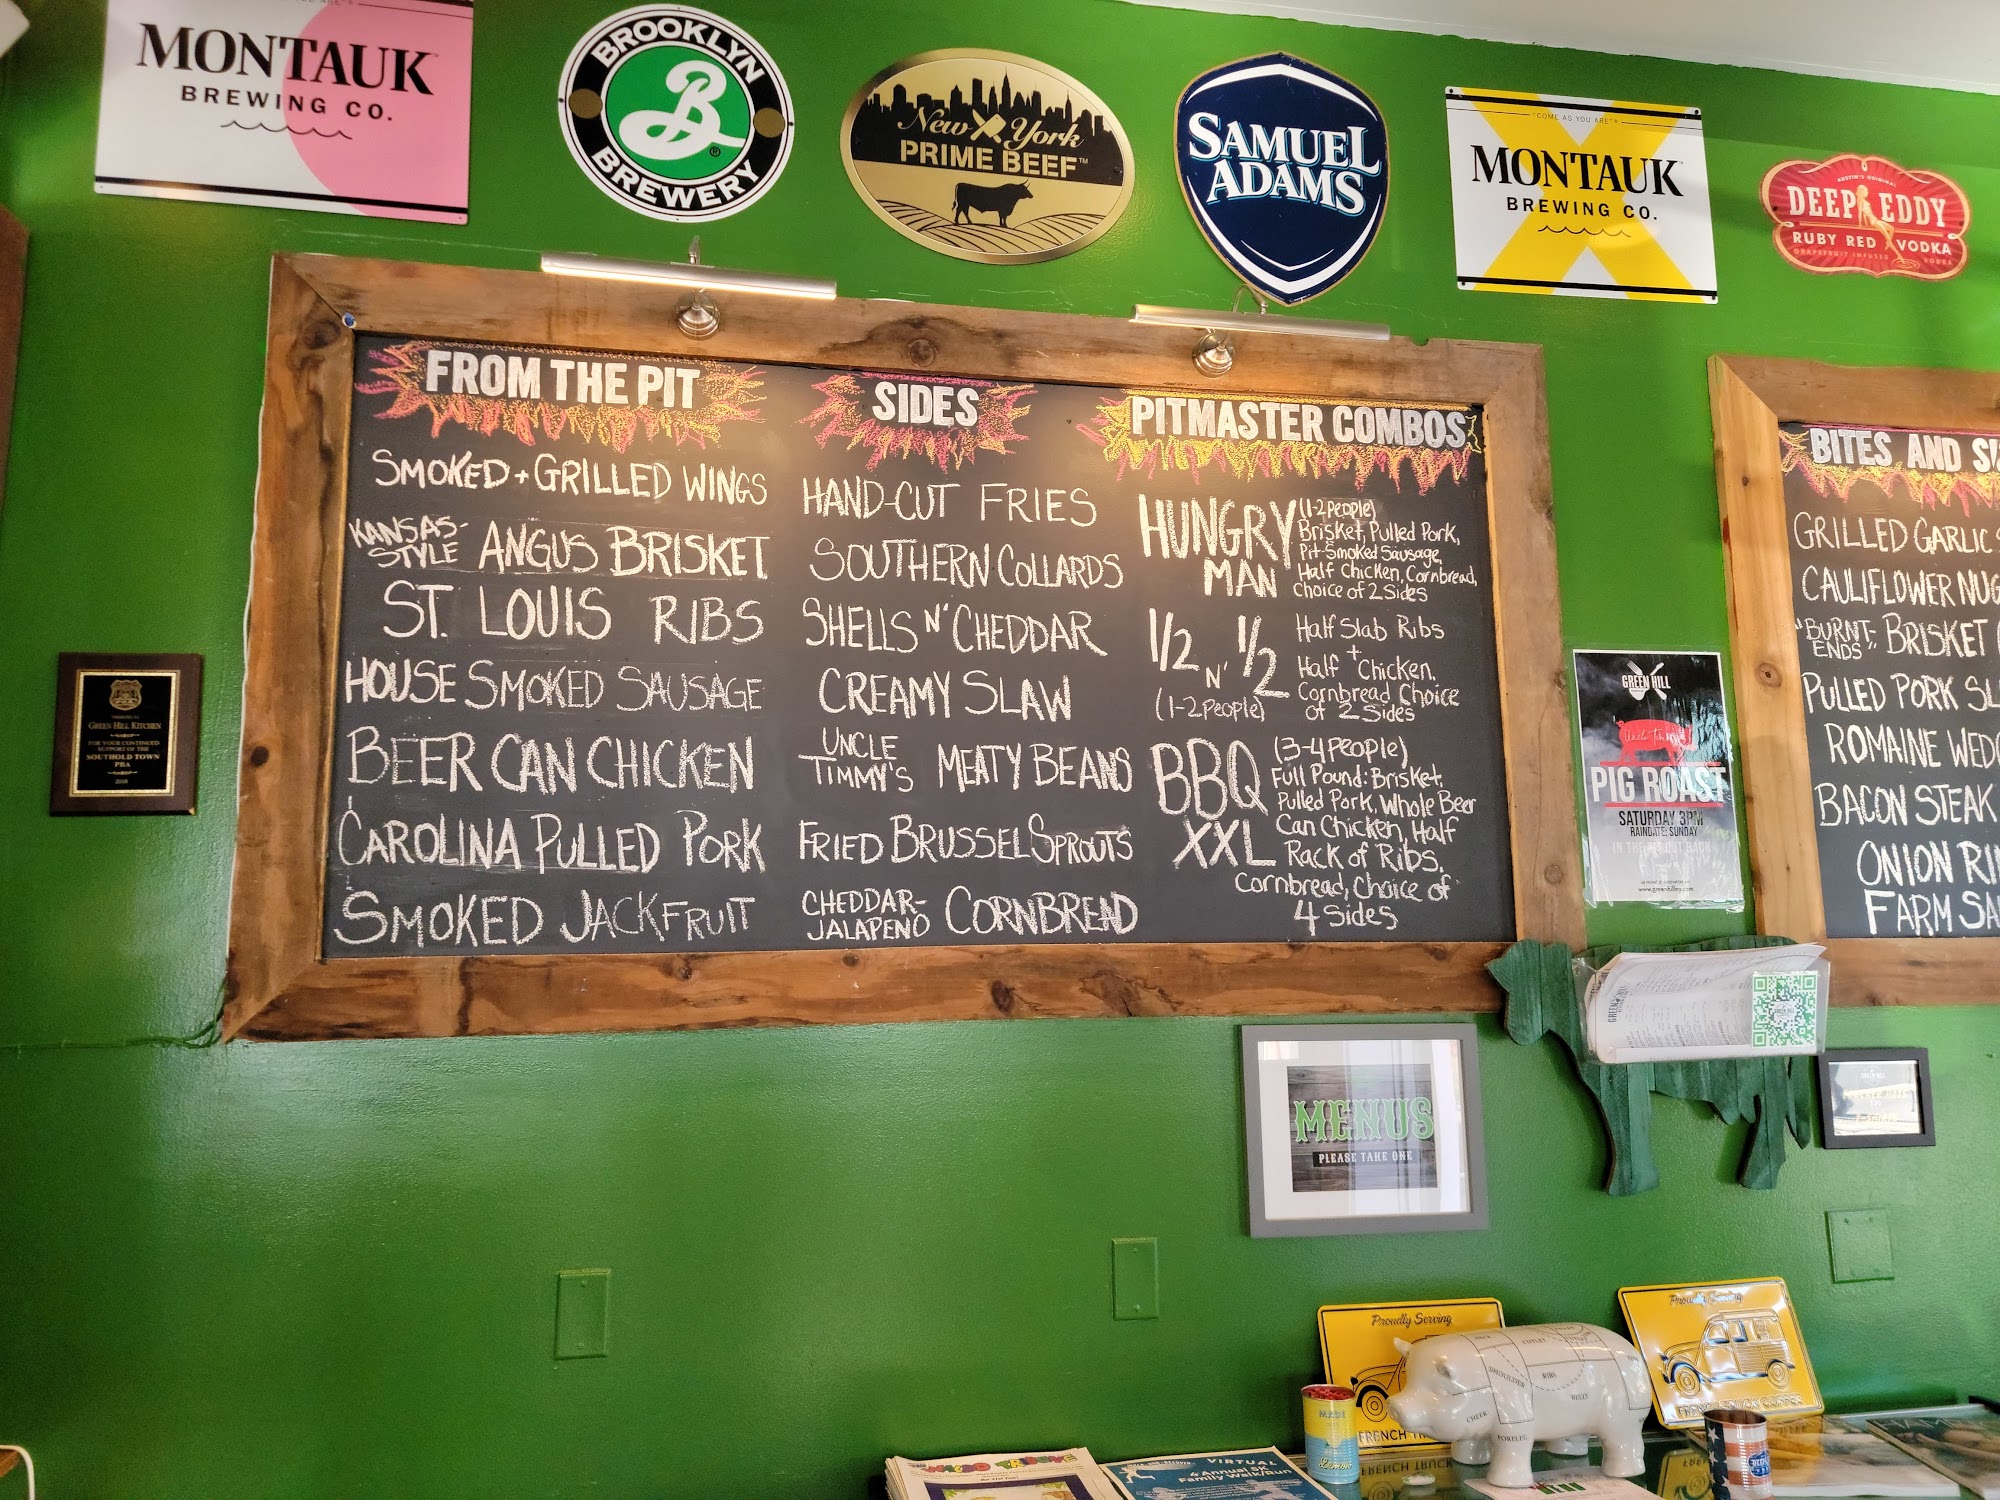 MONTAUK
BREWING CO.
BROOKLYN
B
BREWERY
New York
PRIME BEEF™
SAMUEL
ADAMS
"COME AS YOU ARE"
MONTAUK
BREWING CO.
AUSTIN'S ORIGINAL
DEEP EDDY
RUBY RED VODKA
GRAPEFRUIT INFUSED VODKA
FROM THE PIT
SMOKED + GRILLED WINGS
KANSAS-
STYLE ANGUS BRISKET
ST. LOUIS RIBS
HOUSE SMOKED SAUSAGE
BEER CAN CHICKEN
CAROLINA PULLED PORK
SMOKED JACKFRUIT
SIDES
HAND-CUT FRIES
SOUTHERN COLLARDS
SHELLS N' CHEDDAR
CREAMY SLAW
UNCLE
TIMMY'S MEATY BEANS
FRIED BRUSSEL SPROUTS
CHEDDAR-
JALAPENO CORNBREAD
PITMASTER COMBOS
HUNGRY
MAN
(1-2 PEOPLE)
Brisket, Pulled Pork,
Pit-Smoked Sausage,
Half Chicken, Cornbread,
Choice of 2 Sides
1/2 N' 1/2
(1-2 PEOPLE)
Half Slab Ribs
+
Half Chicken.
Cornbread Choice
of 2 Sides
BBQ
XXL
(3-4 PEOPLE)
Full Pound: Brisket,
Pulled Pork, Whole Beer
Can Chicken, Half
Rack of Ribs.
Cornbread, Choice of
4 Sides
BITES AND
GRILLED GARLIC
CAULIFLOWER
"BURNT-
ENDS" BRISKET
PULLED PORK
ROMAINE
BACON STEAK
ONION
FARM
GREEN HILL KITCHEN
FOR YOUR CONTINUED
SUPPORT OF THE
SOUTHOLD TOWN
PBA
GREEN HILL
PIG ROAST
SATURDAY 3PM
RAINDATE: SUNDAY
MENUS
PLEASE TAKE ONE
Proudly Serving
Proudly Serving
CHEEK
SHOULDER
RIBS
BELLY
FORELEG
VIRTUAL
4 Annual 5K
Family Walk/Run